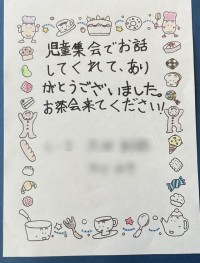 児童集会でお話
してくれて、あり
がとうございました。
お茶会来てください!